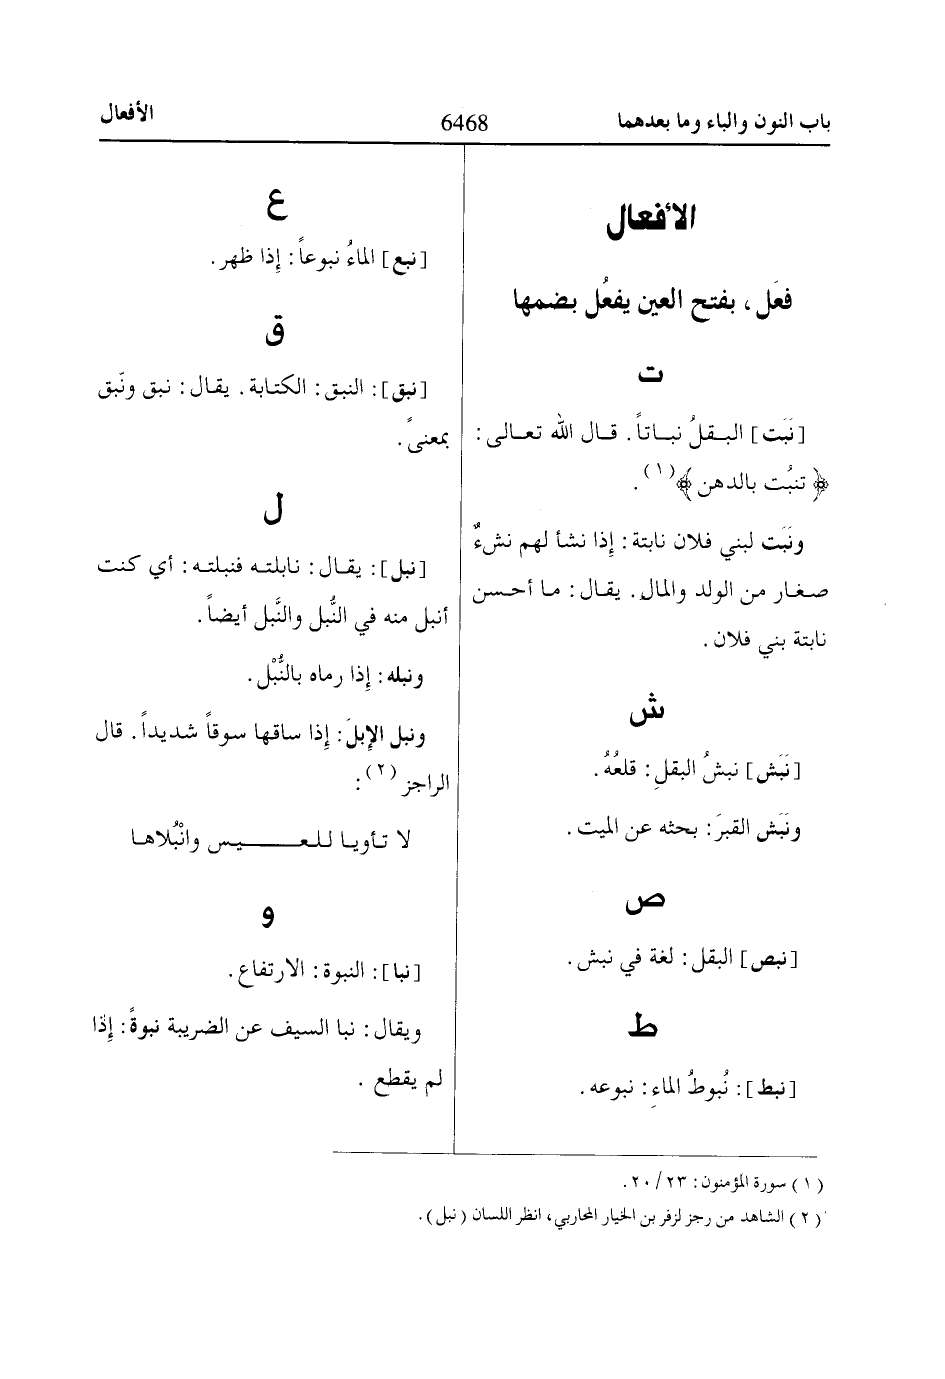 باب النون والباء وما بعدهما
6468
الأفعال
الأفعال
فعَل، بفتح العين يفعُل بضمها
ت
[نَبَت] البـقلُ نبـاتاً. قـال الله تعـالى:
﴿تنبُت بالدهن﴾(١).
ونَبَت لبني فلان نابتة: إِذا نشأ لهم نشءٌ
صغار من الولد والمال. يقال: ما أحسن
نابتة بني فلان.
ش
[نَبَش] نبشُ البقلِ: قلعُهُ.
ونَبَش القبرَ: بحثه عن الميت.
ص
[نبص] البقل: لغة في نبش.
ط
[نبط]: نُبوطُ الماءِ: نبوعه.
ع
[نبع] الماءُ نبوعاً: إِذا ظهر.
ق
[نبق]: النبق: الكتابة. يقال: نبق ونَبّق
بمعنىً.
ل
[نبل]: يقـال: نابلتـه فنبلتـه: أي كنت
أنبل منه في النُّبل والنَّبل أيضاً.
ونبله: إِذا رماه بالنُّبْل.
ونبل الإِبلَ: إِذا ساقها سوقاً شديداً. قال
الراجز(٢):
لا تـأويـا للعـــــيس وانْبُلاهـا
و
[نبا]: النبوة: الارتفاع.
ويقال: نبا السيف عن الضريبة نبوةً: إِذا
لم يقطع.
(١) سورة المؤمنون: ٢٣/ ٢٠.
(٢) الشاهد من رجز لزفر بن الخيار المحاربي، انظر اللسان (نبل).